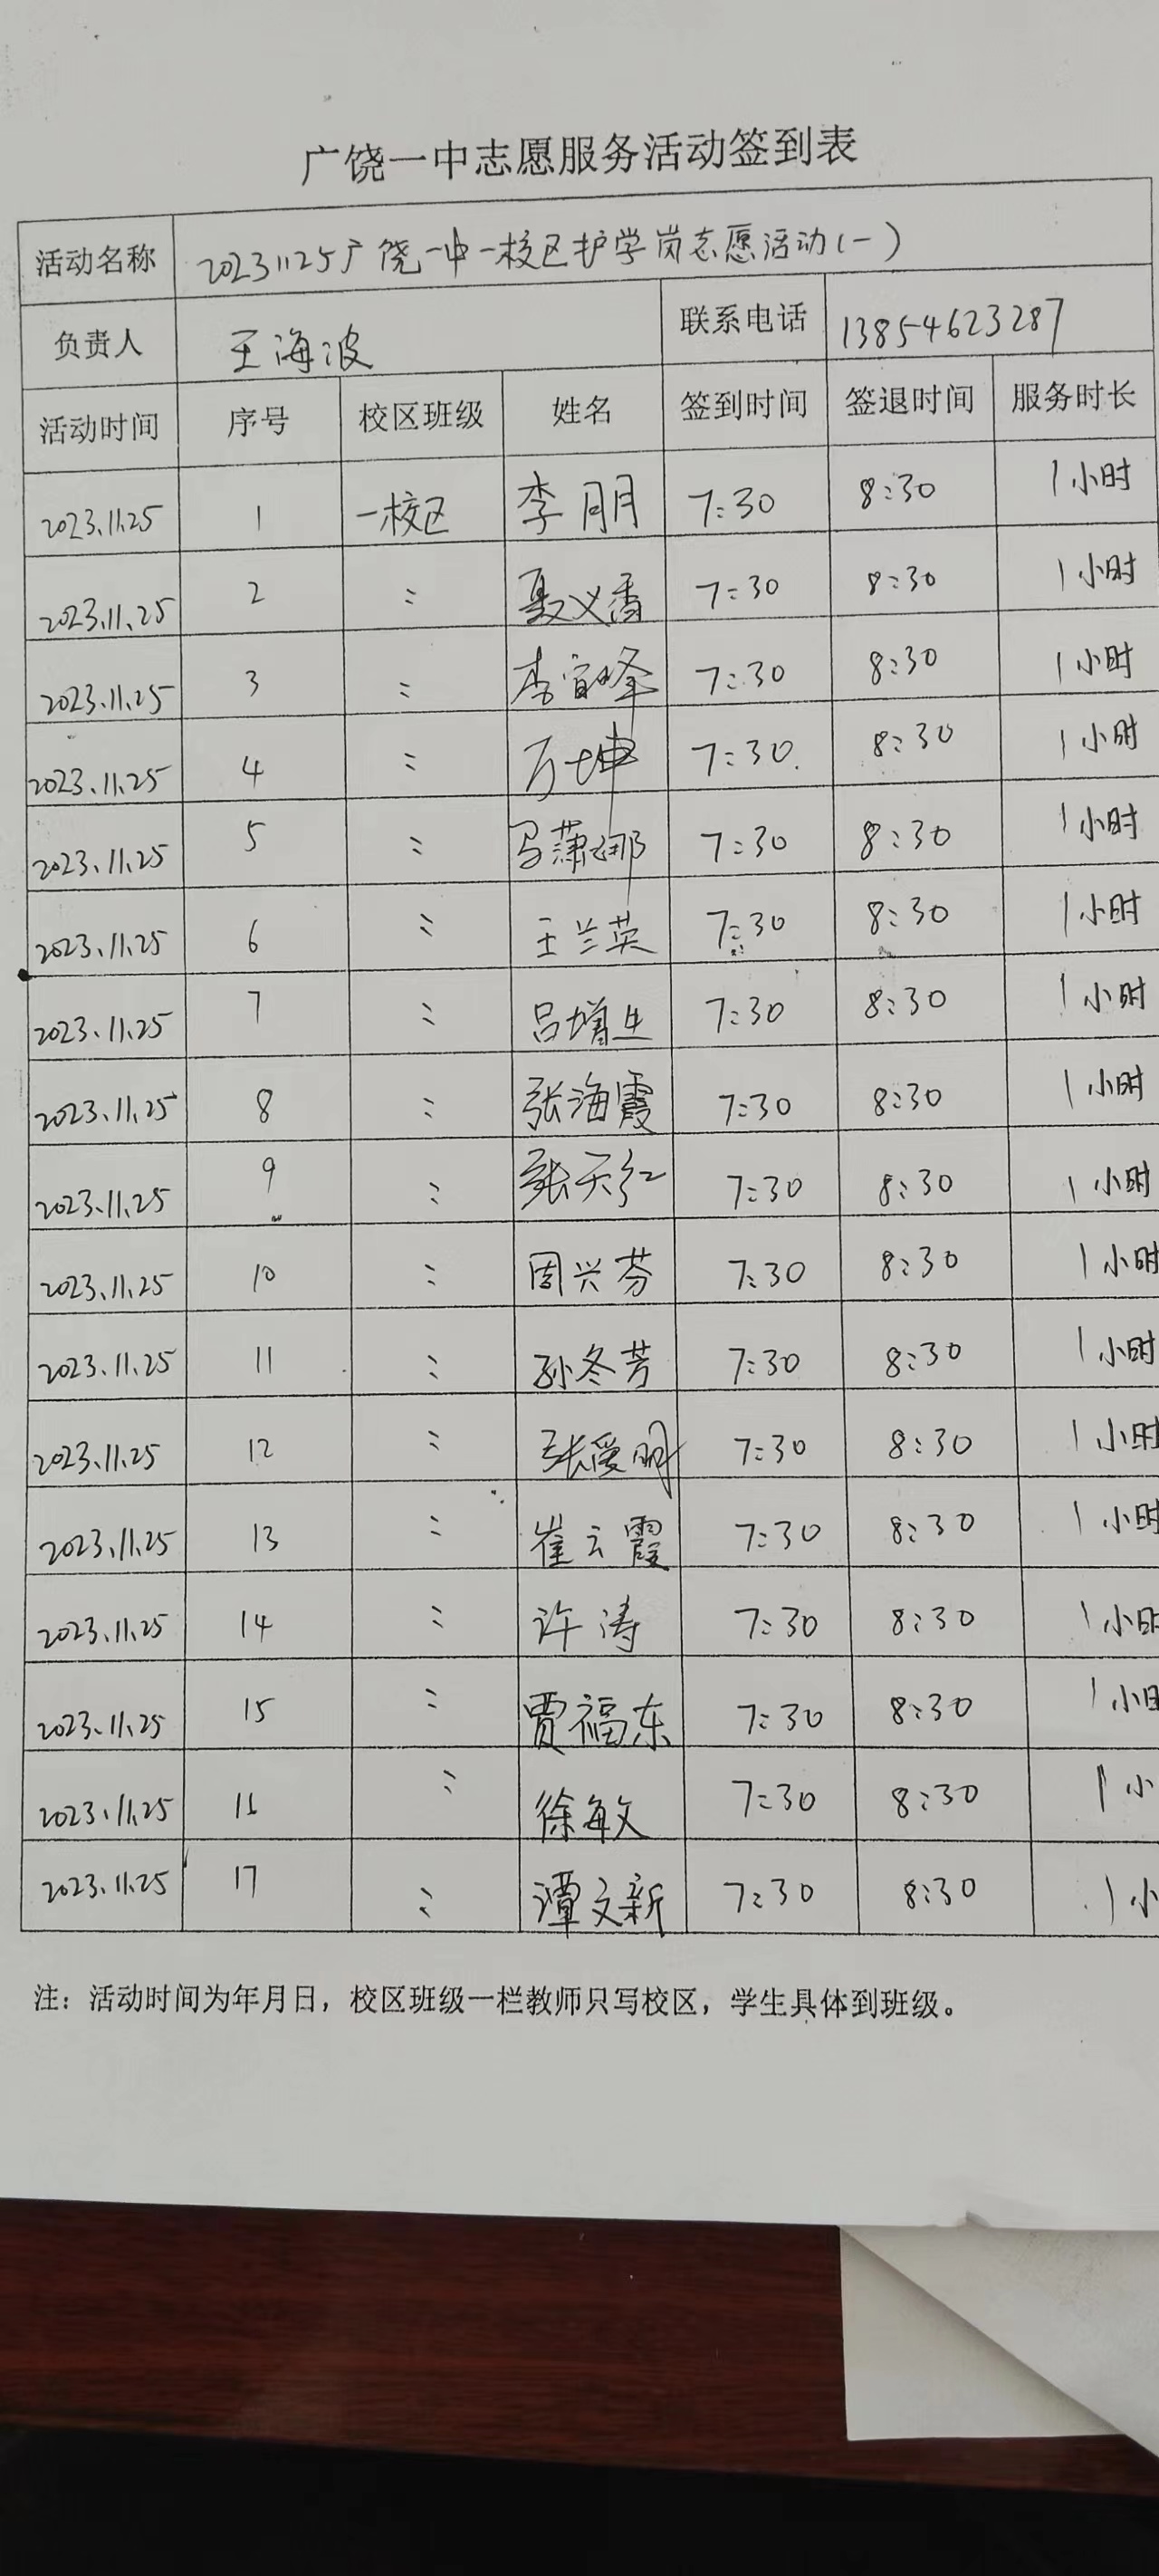 广饶一中志愿服务活动签到表
活动名称 20231125广饶一中一校区护学岗志愿活动(一)
负责人 王海波 联系电话 13854623287
活动时间 序号 校区班级 姓名 签到时间 签退时间 服务时长
2023.11.25 1 一校区 李朋 7:30 8:30 1小时
2023.11.25 2 〃 聂义香 7:30 8:30 1小时
2023.11.25 3 〃 李宜峰 7:30 8:30 1小时
2023.11.25 4 〃 万坤 7:30 8:30 1小时
2023.11.25 5 〃 马潇娜 7:30 8:30 1小时
2023.11.25 6 〃 王兰英 7:30 8:30 1小时
2023.11.25 7 〃 吕增生 7:30 8:30 1小时
2023.11.25 8 〃 张海霞 7:30 8:30 1小时
2023.11.25 9 〃 张天红 7:30 8:30 1小时
2023.11.25 10 〃 周兴芬 7:30 8:30 1小时
2023.11.25 11 〃 孙冬芳 7:30 8:30 1小时
2023.11.25 12 〃 张爱明 7:30 8:30 1小时
2023.11.25 13 〃 崔云霞 7:30 8:30 1小时
2023.11.25 14 〃 许涛 7:30 8:30 1小时
2023.11.25 15 〃 贾福东 7:30 8:30 1小
2023.11.25 16 〃 徐敏 7:30 8:30 1小
2023.11.25 17 〃 谭文新 7:30 8:30 1小
注：活动时间为年月日，校区班级一栏教师只写校区，学生具体到班级。